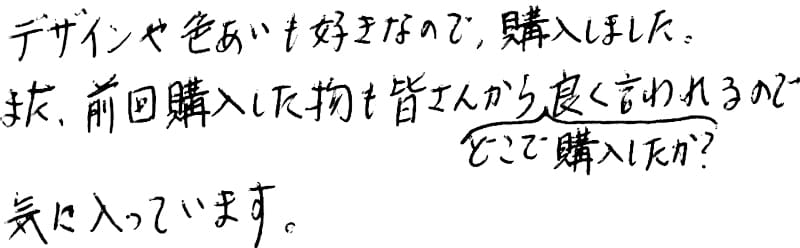 デザインや色あいも好きなので、購入しました。
また、前回購入した物も皆さんから良く言われるので
どこで購入したか?
気に入っています。